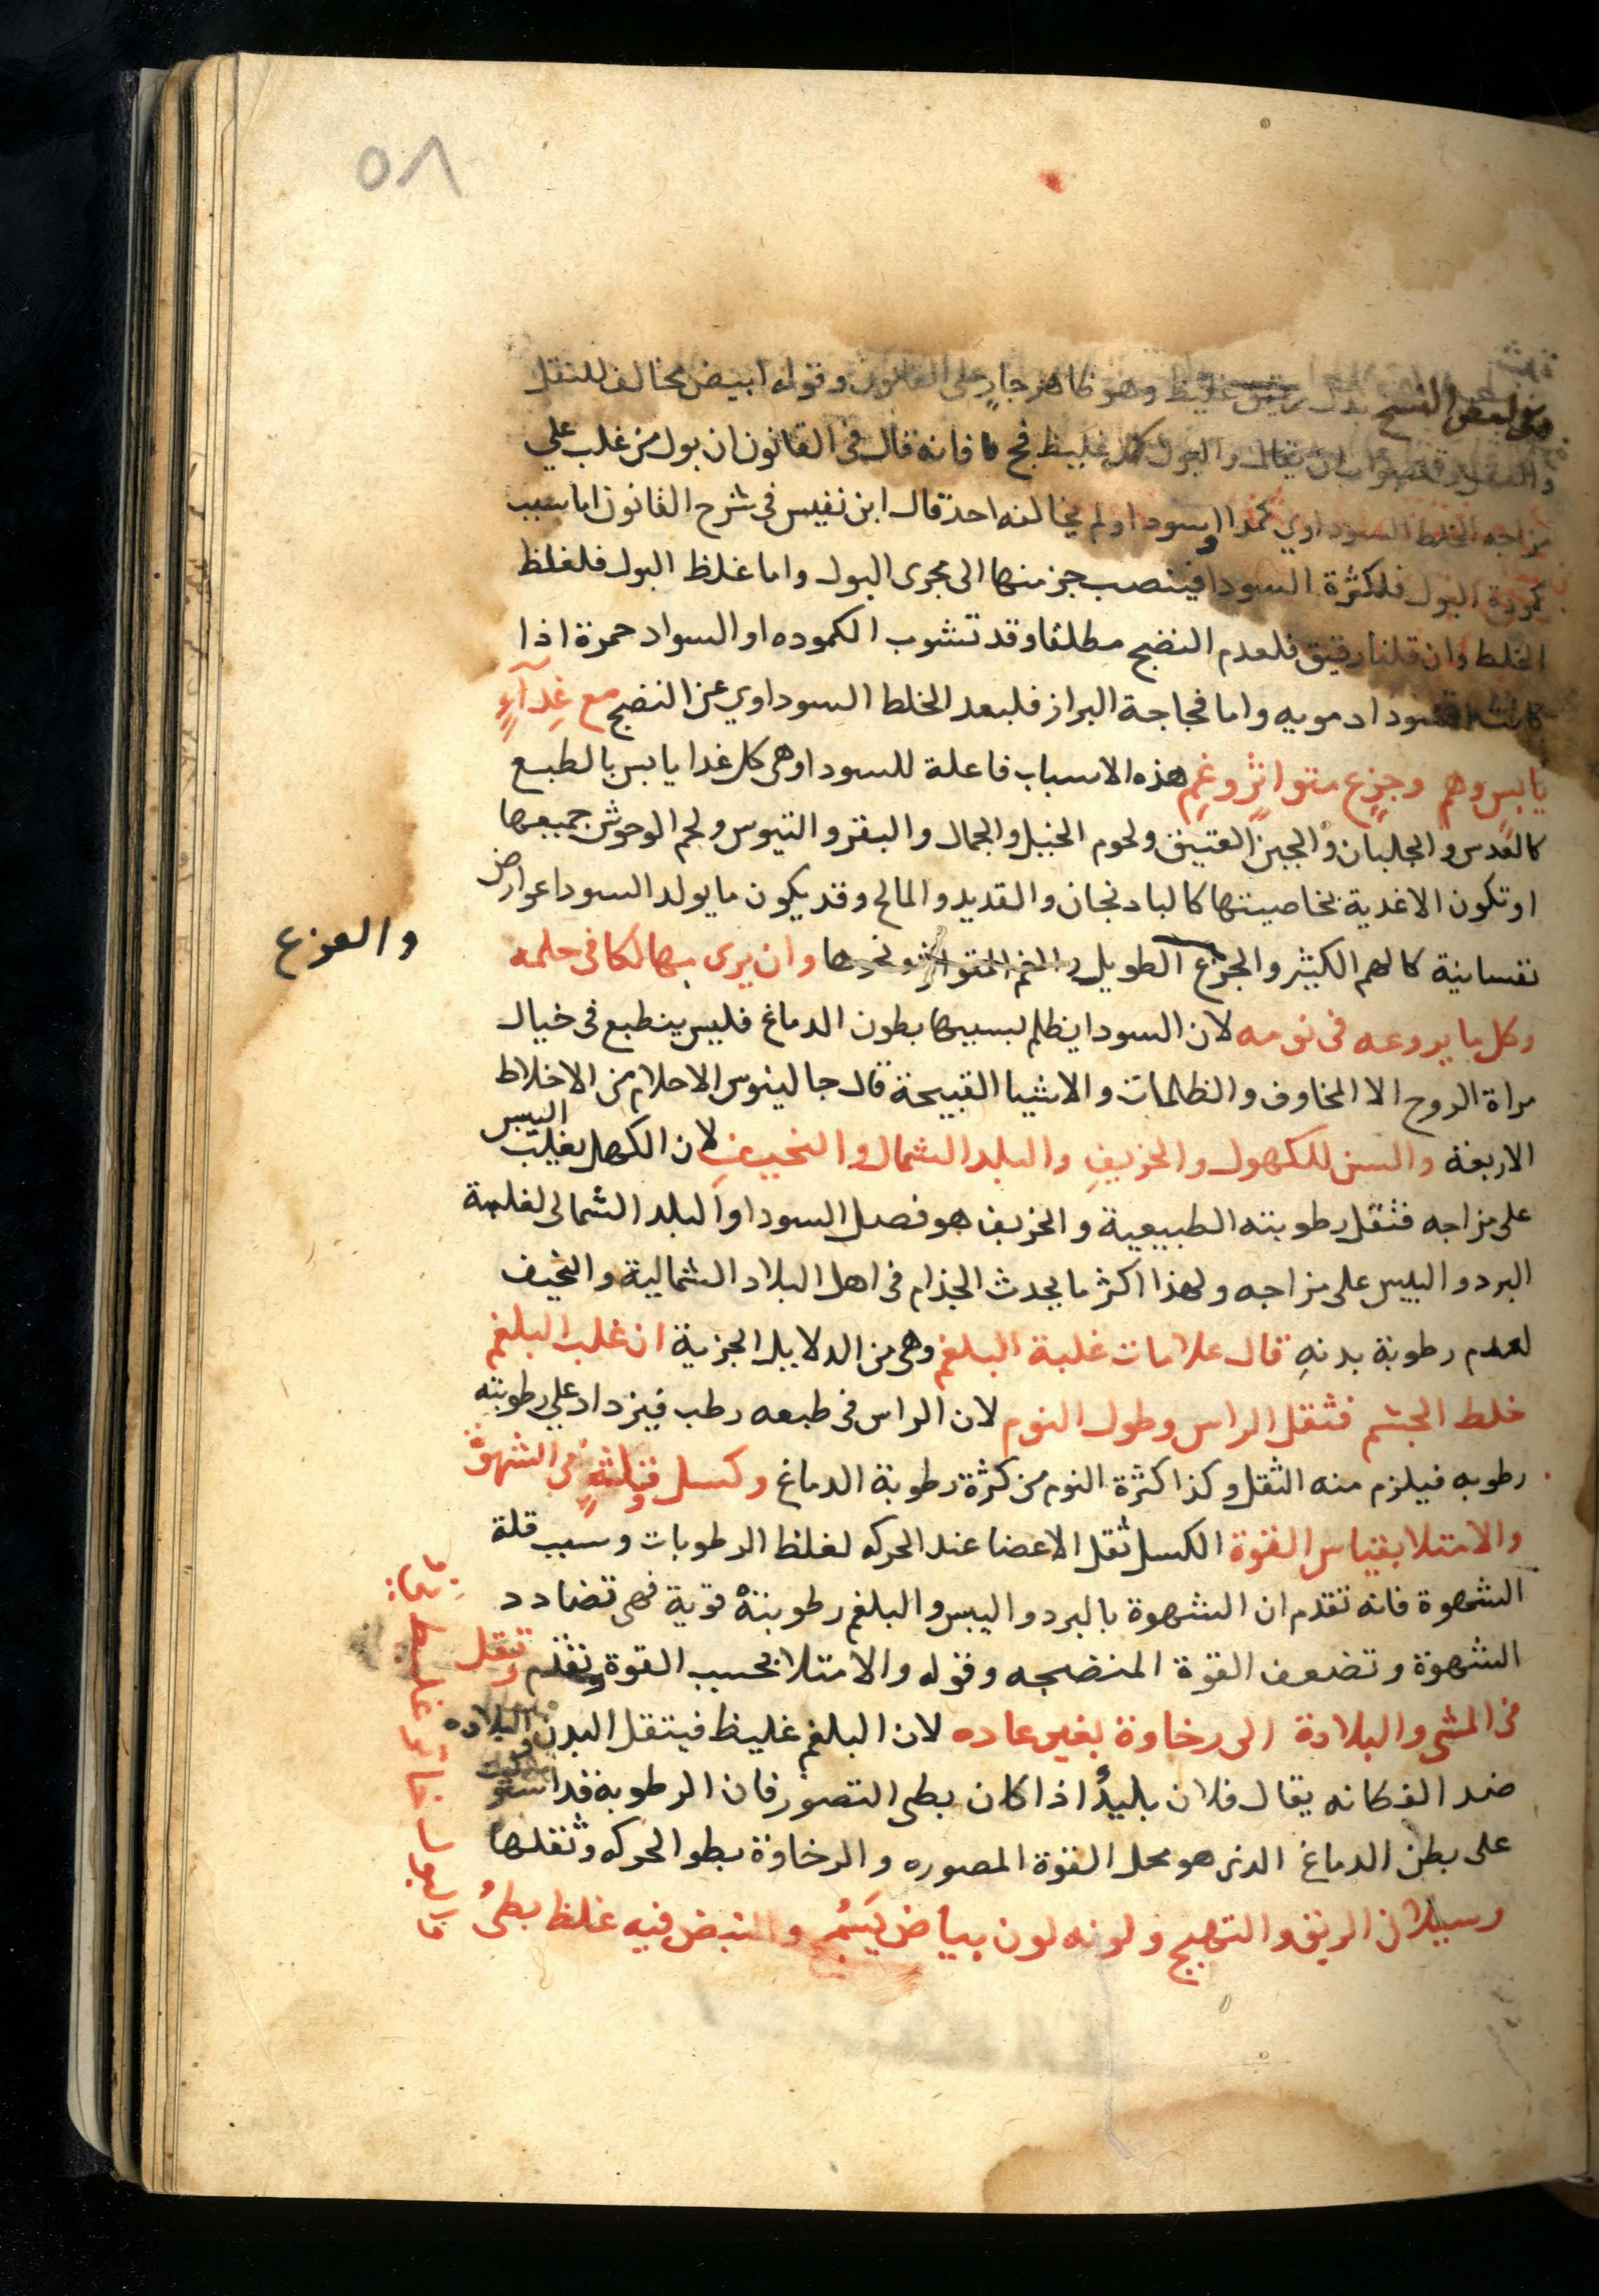 ٥٨
وفي بعض النسخ بدل رقيق غليظ وهو ظاهر جارٍ على القانون وقوله ابيض مخالف للنقل
والعقل يقال والبول كمد غليظ فج فانه قال في القانون ان بول من غلب علي
مزاجه الخلط السوداوي كمدا او اسودا ولم يخالفه احد قال ابن نفيس في شرح القانون اما سبب
كمودة البول فلكثرة السودا فينصب جز منها الى مجرى البول واما غلظ البول فلغلظ
الخلط وان قلنا رقيق فلعدم النضج مطلقا وقد تشوب الكموده او السواد حمرة اذا
كانت السودا دمويه واما فجاجة البراز فلبعد الخلط السوداوي عن النضج مع غدآءٍ
يابسٍ وهمٍ وجزعٍ متواترٍ وغمٍ هذه الاسباب فاعلة للسودا وهي كل غدا يابس بالطبع
كالعدس والجلبان والجبن العتيق ولحوم الخيل والجمال والبقر والتيوس ولحم الوحوش جميعها
او تكون الاغدية بخاصيتها كالبادنجان والقديد والمالح وقد يكون ما يولد السودا عوارض
نفسانية كالهم الكثير والجزع الطويل والغم المتواتر ونحوها وان يرى مهالكا في حلمه
والفزع
وكل ما يروعه في نومه لان السودا يظلم بسببها بطون الدماغ فليس ينطبع في خيال
مراة الروح الا المخاوف والظلمات والاشيا القبيحة قال جالينوس الاحلام من الاخلاط
الاربعة والسن للكهول والخريفِ والبلد الشمال والنحيفِ لان الكهل يغلب اليبس
على مزاجه فتقل رطوبته الطبيعية والخريف هو فصل السودا والبلد الشمالي لغلبة
البرد واليبس على مزاجه ولهذا اكثر ما يحدث الجذام في اهل البلاد الشمالية والنحيف
لعدم رطوبة بدنهِ قال علامات غلبة البلغم وهي من الدلايل الجزية ان غلب البلغم
خلط الجسم فثقل الراس وطول النوم لان الراس في طبعه رطب فيزداد علي رطوبته
رطوبه فيلزم منه الثقل وكذا كثرة النوم من كثرة رطوبة الدماغ وكسل وقلةٍ في الشهوة
والامتلا بقياس القوة الكسل ثقل الاعضا عند الحركه لغلظ الرطوبات وسبب قلة
الشهوة فانه تقدم ان الشهوة بالبرد واليبس والبلغم رطوبتهُ قوية فهي تضادد
الشهوة وتضعف القوة المنضجه وقوله والامتلا بحسب القوة وتقدم وثقل
في المشي والبلادة الى رخاوة بغير عاده لان البلغم غليظ فيثقل البدن والبلاده
ضد الذكانه يقال فلان بليدٌ اذا كان بطى التصور فان الرطوبة قد استولت
على بطن الدماغ الدى هو محل القوة المصوره والرخاوة بطو الحركه وثقلها
وسيلان الريق والتهيج ولونه لون بياض يسمج والنبض فيه غلظ بطىُ
والبول خاثر غليظ نيُّ